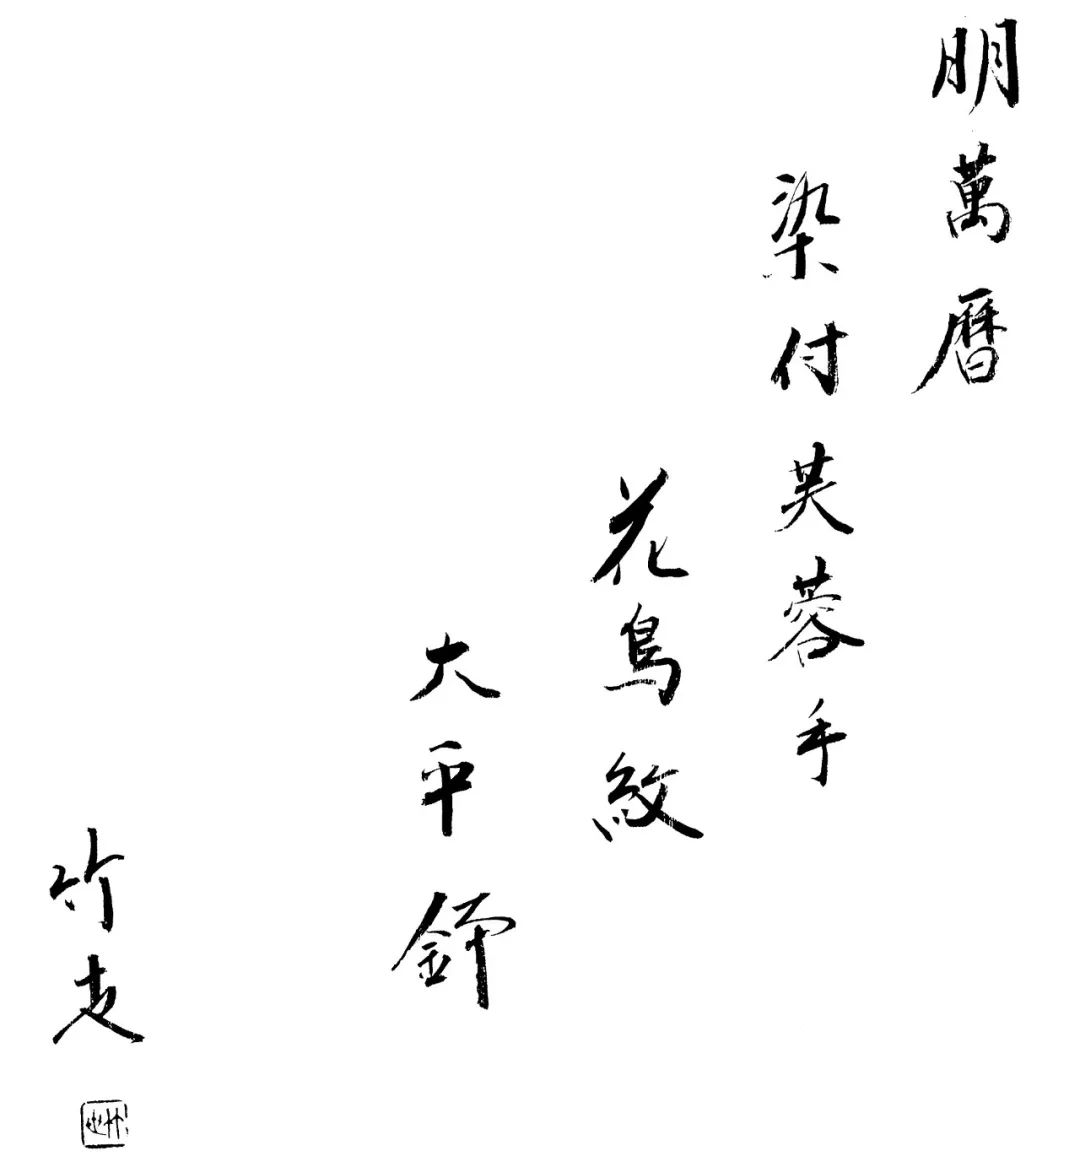 明萬暦
染付芙蓉手
花鳥紋
大平鉢
竹